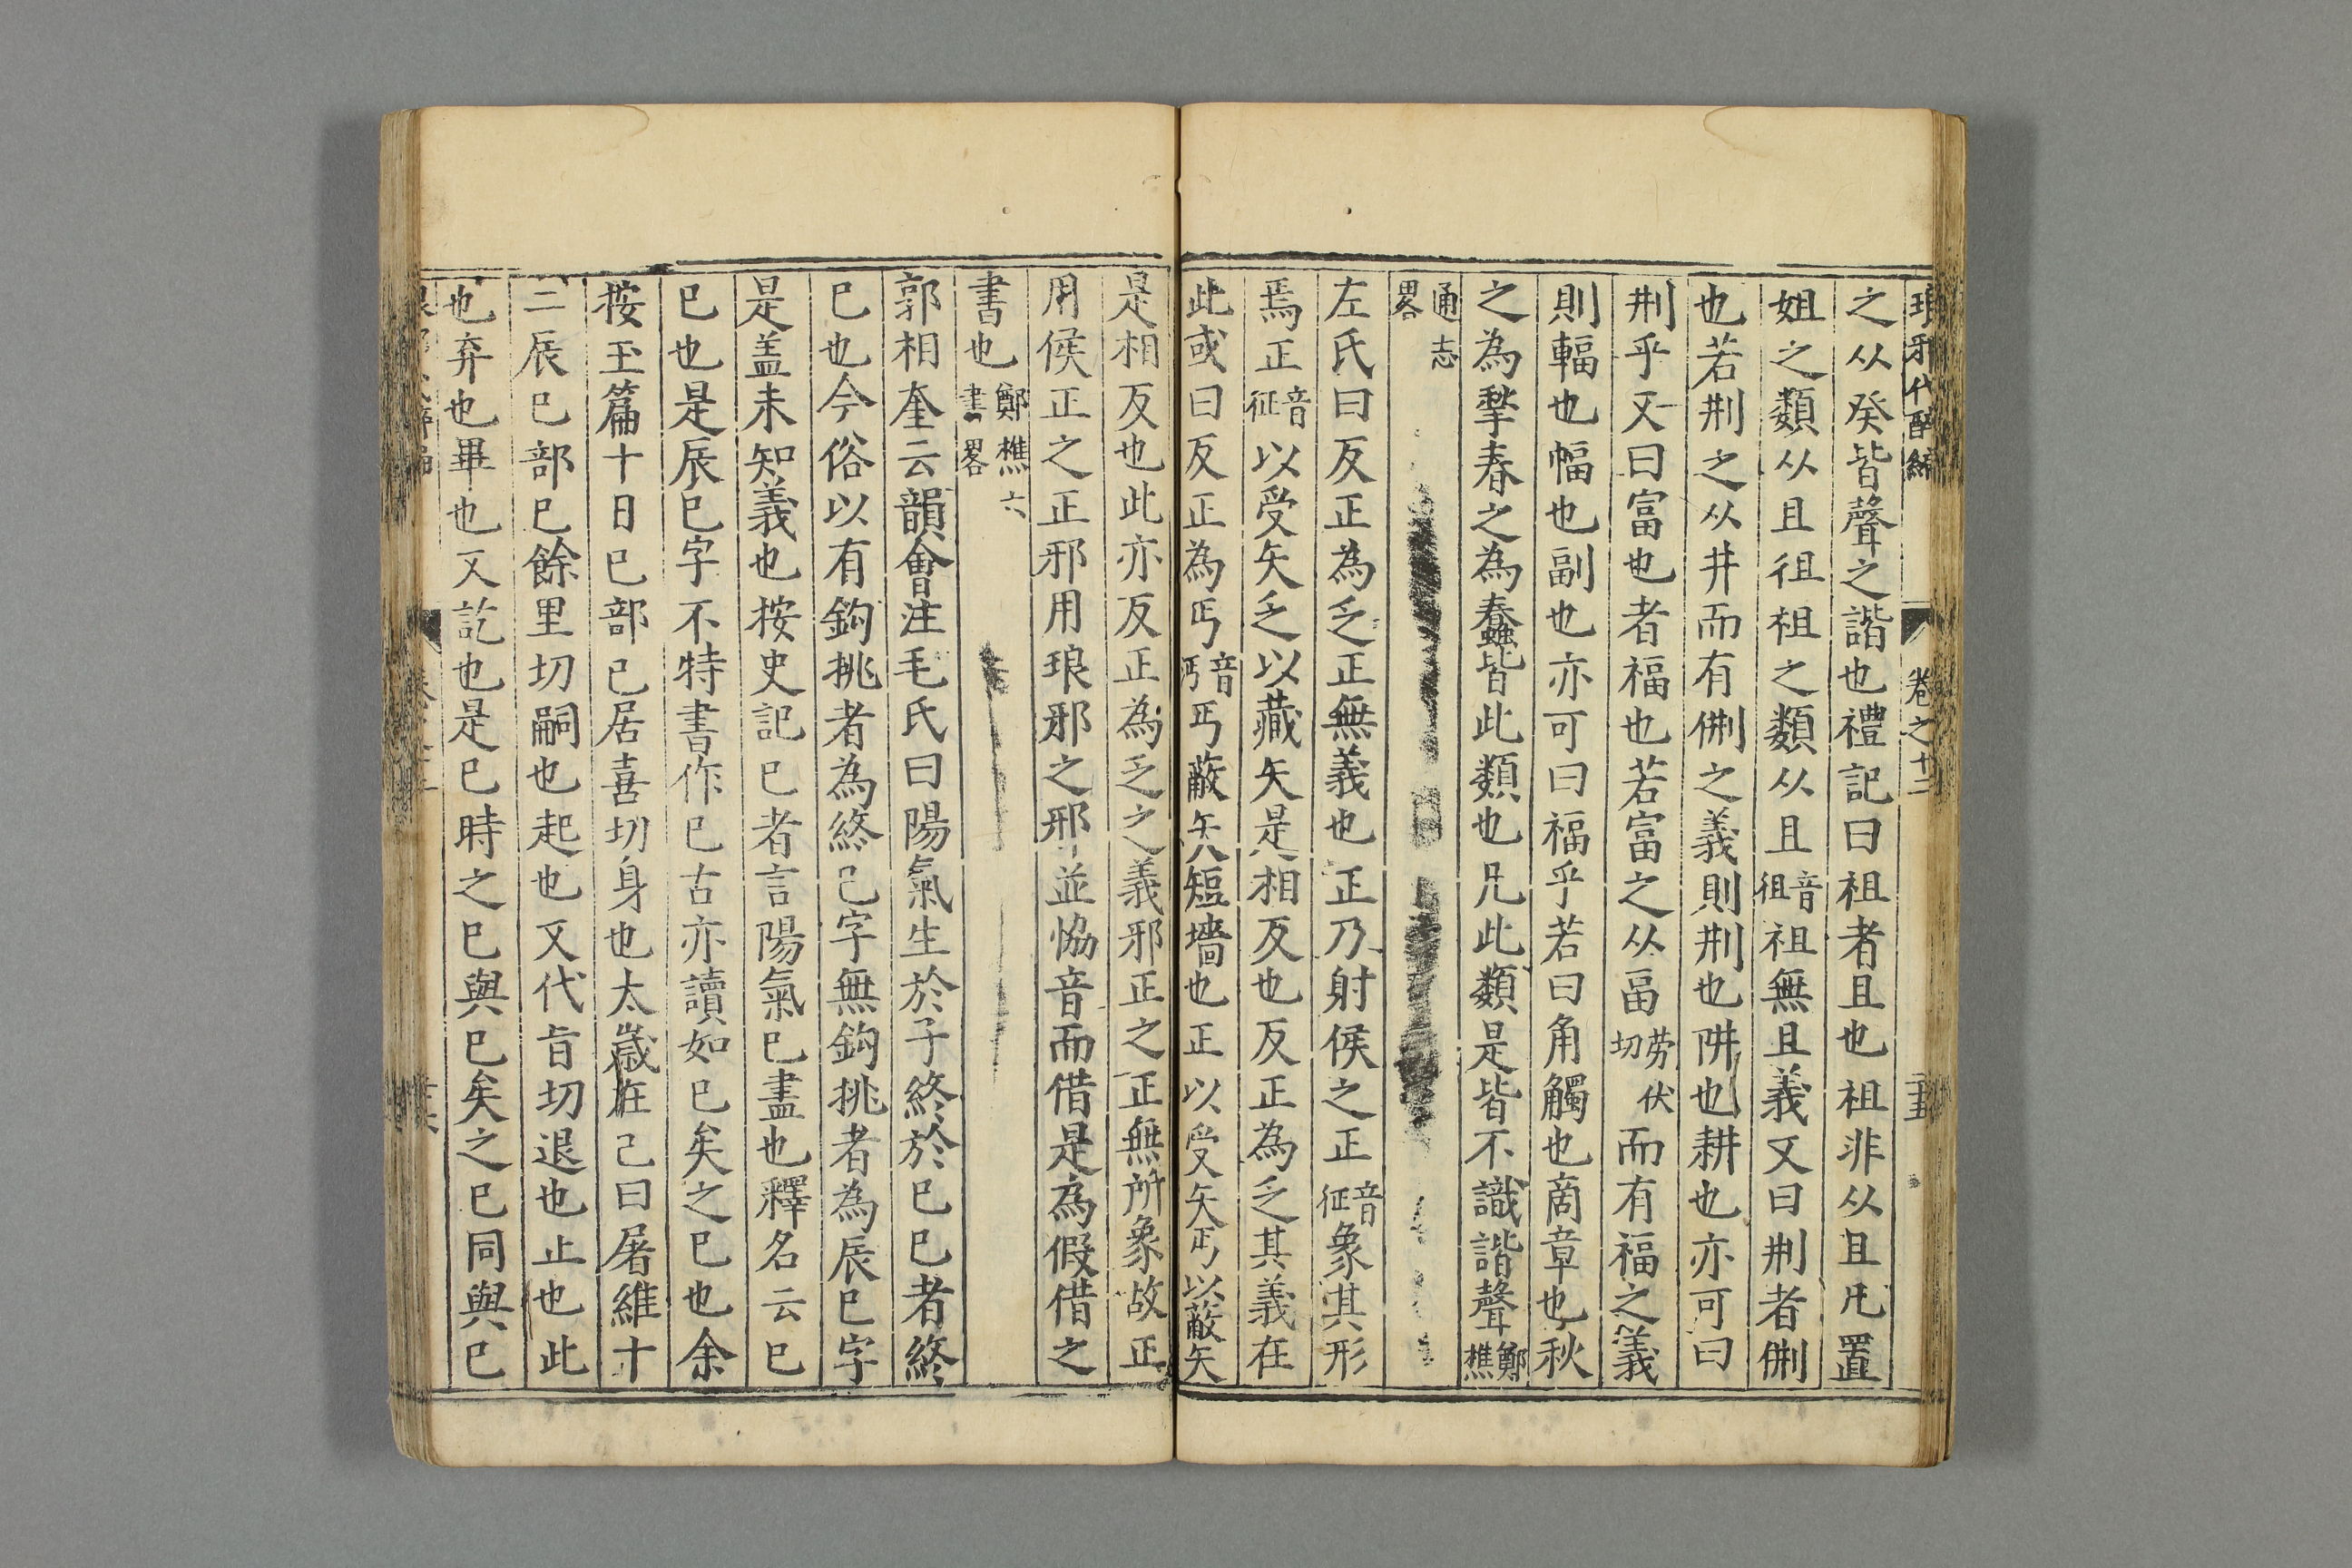 琅邪代醉編 卷之十二
之从癸皆聲之諧也禮記曰祖者且也祖非从且凡置
姐之類从且徂祖之類从且音徂祖無且義又曰刑者侀
也若刑之从井而有侀之義則刑也阱也耕也亦可曰
刑乎又曰富也者福也若富之从畐芳伏切而有福之義
則輻也幅也副也亦可曰福乎若曰角觸也商章也秋
之為揫春之為蠢皆此類也凡此類是皆不識諧聲鄭樵
通志畧
左氏曰反正為乏正無義也正乃射侯之正音征象其形
焉正音征以受矢乏以藏矢是相反也反正為乏其義在
此或曰反正為丏音丏丏蔽矢短墻也正以受矢丏以蔽矢
是相反也此亦反正為乏之義邪正之正無所象故正
用侯正之正邪用琅邪之邪並恊音而借是為假借之
書也鄭樵六書畧
郭相奎云韻會注毛氏曰陽氣生於子終於巳巳者終
巳也今俗以有鈎挑者為終已字無鈎挑者為辰巳字
是盖未知義也按史記巳者言陽氣巳盡也釋名云巳
巳也是辰巳字不特書作巳古亦讀如已矣之已也余
按玉篇十日已部己居喜切身也太歲在己曰屠維十
二辰巳部巳餘里切嗣也起也又代旨切退也止也此
也弃也畢也又訖也是巳時之巳與巳矣之巳同與巳